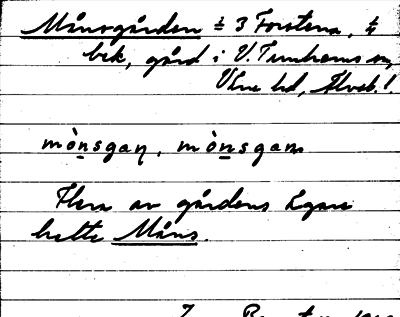 Månsgården = 3 Forstena,
bek, gård i V. Tunhems sn,
Väne hd, Älvsb. l.
mònsgaṇ, mònsgan
Flera av gårdens ägare
hette Måns.